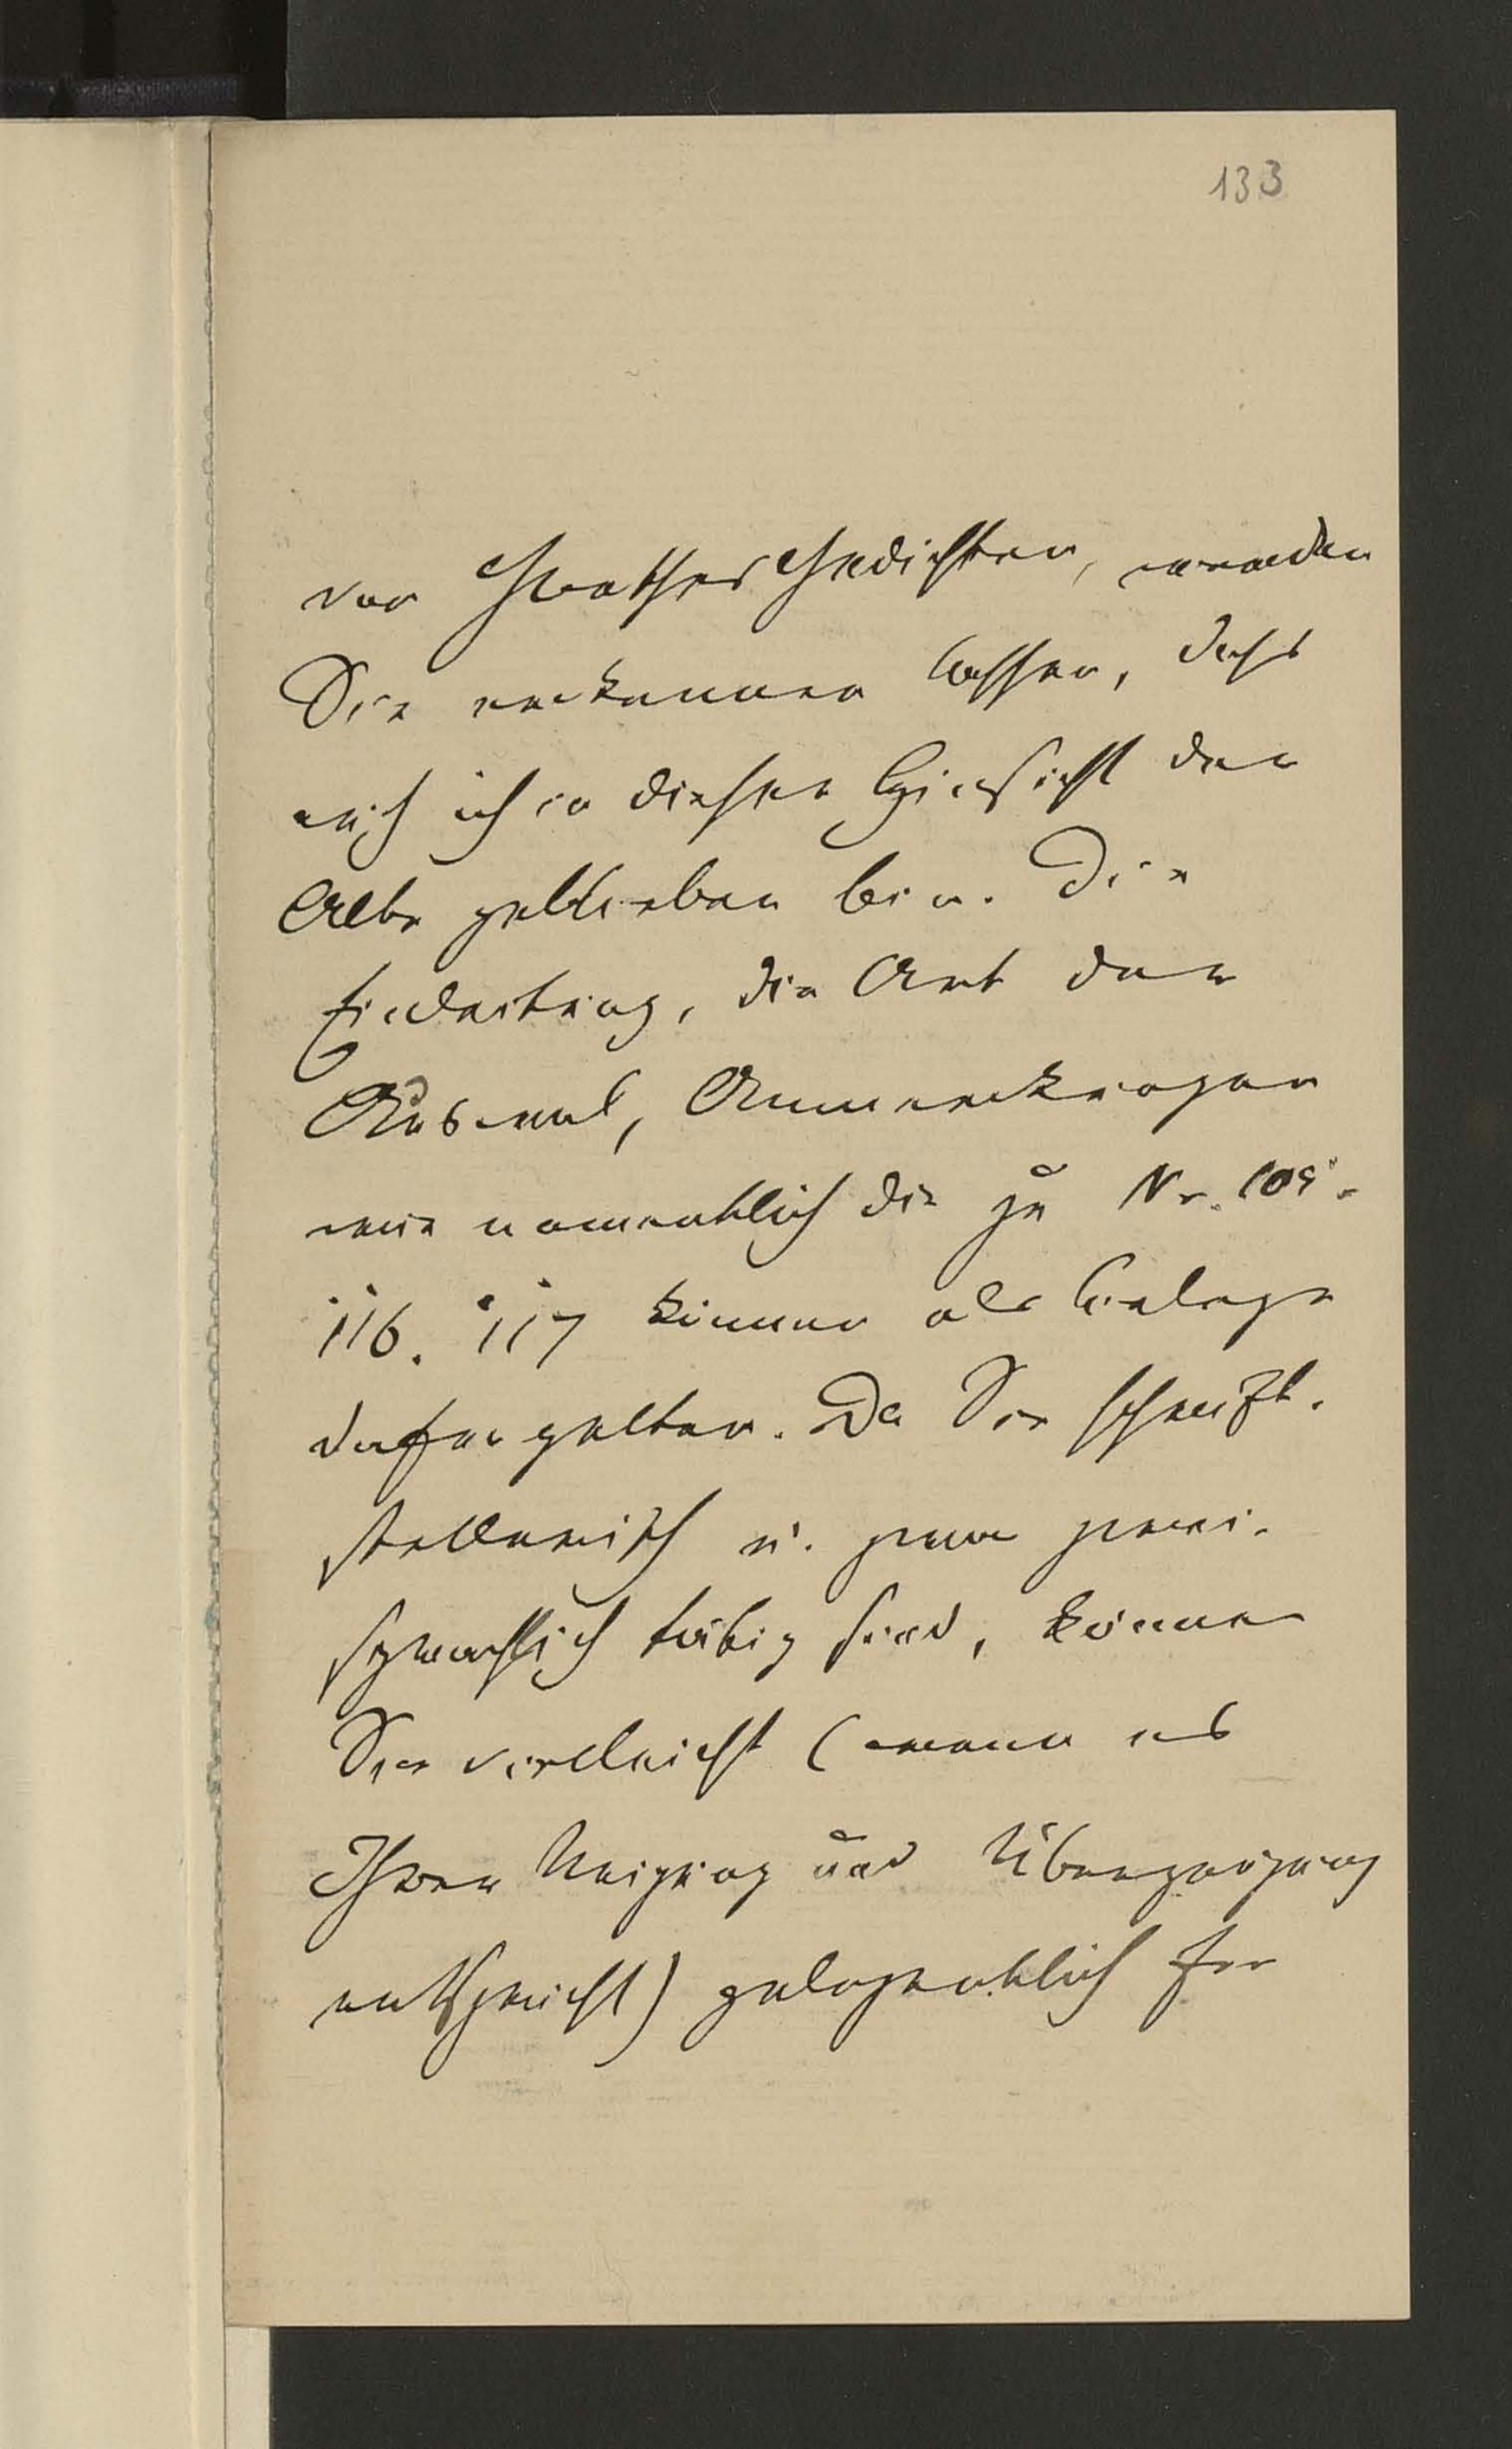 133
von Goethes Gedichten, werden
Sie erkennen lassen, dass
auch ich in dieser Hinsicht der
Alte geblieben bin. Die
Einleitung, die Art der
Auswal, Anmerkungen
wie namentlich die zu Nr. 109.
116. 117 können als Belege
dafür gelten. Da Sie schrift-
stellerisch u. zwar zwei-
sprachlich tätig sind, können
Sie vielleicht (wenn es
Ihrer Neigung und Überzeugung
entspricht) gelegentlich for